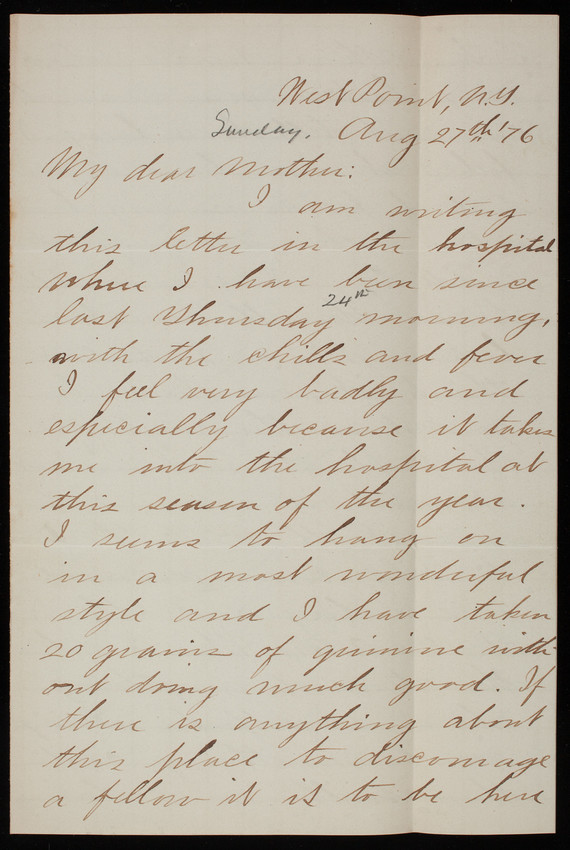 West Point, N.Y.
Sunday. Aug 27th '76
My dear Mother:
I am writing
this letter in the hospital
where I have been since
24th
last Thursday morning,
with the chills and fever
I feel very badly and
especially because it takes
me into the hospital at
this season of the year.
I seems to hang on
in a most wonderful
style and I have taken
20 grains of quinine with-
out doing much good. If
there is anything about
this place to discourage
a fellow it is to be here